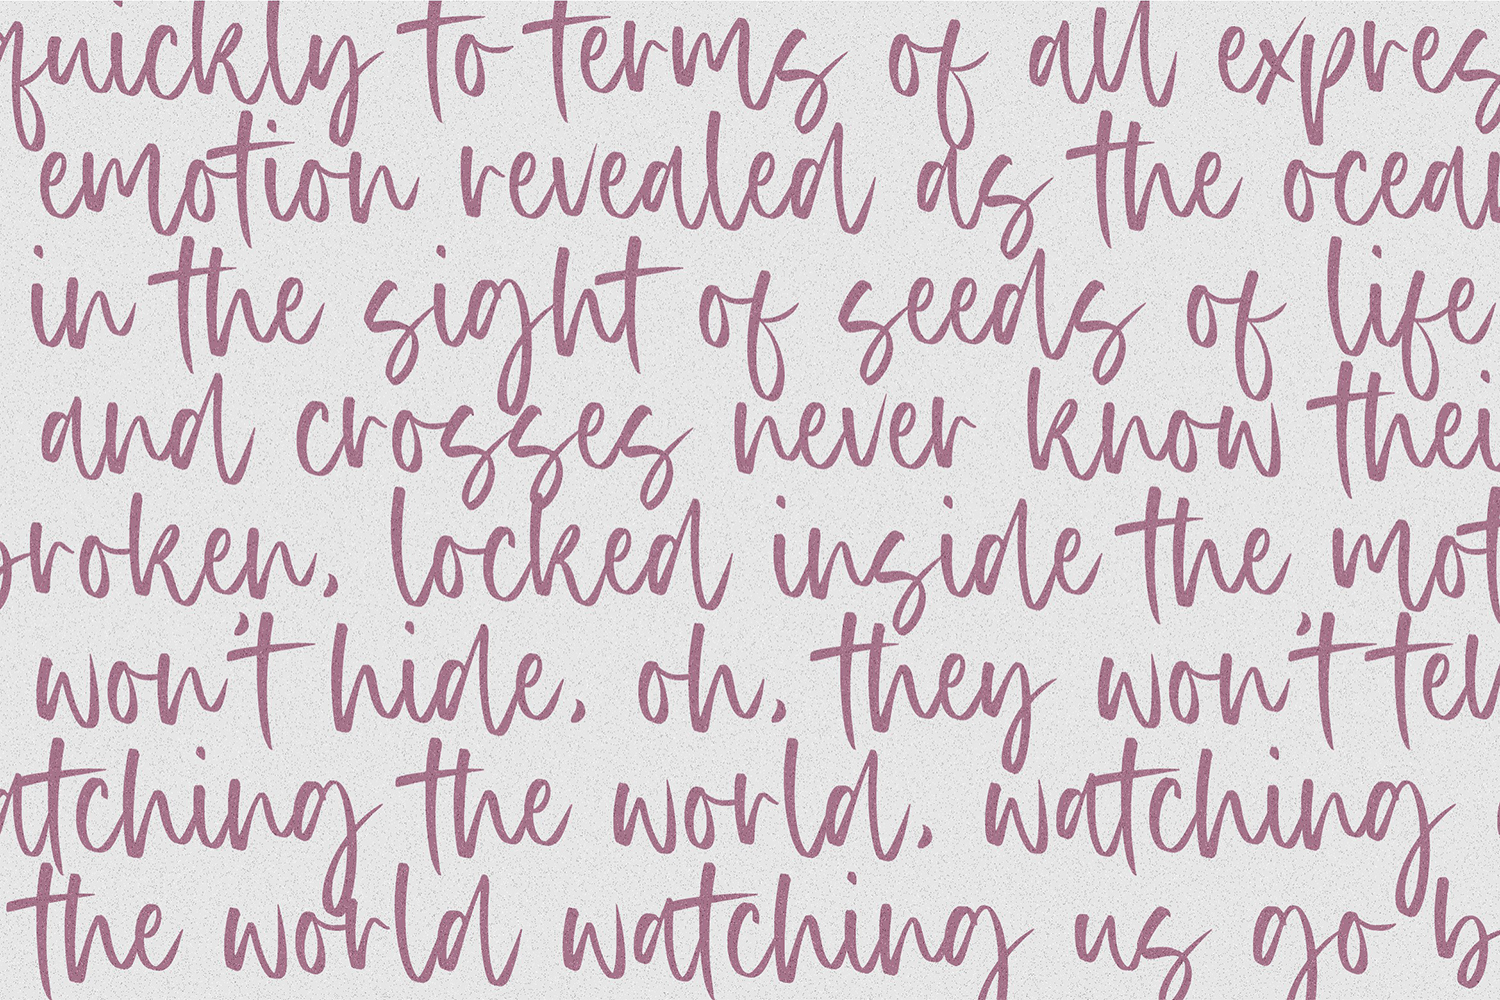 quickly to terms of all expres
emotion revealed as the ocean
in the sight of seeds of life
and crosses never know thei
broken, locked inside the mot
won't hide, oh, they won't tell
watching the world, watching
the world watching us go b